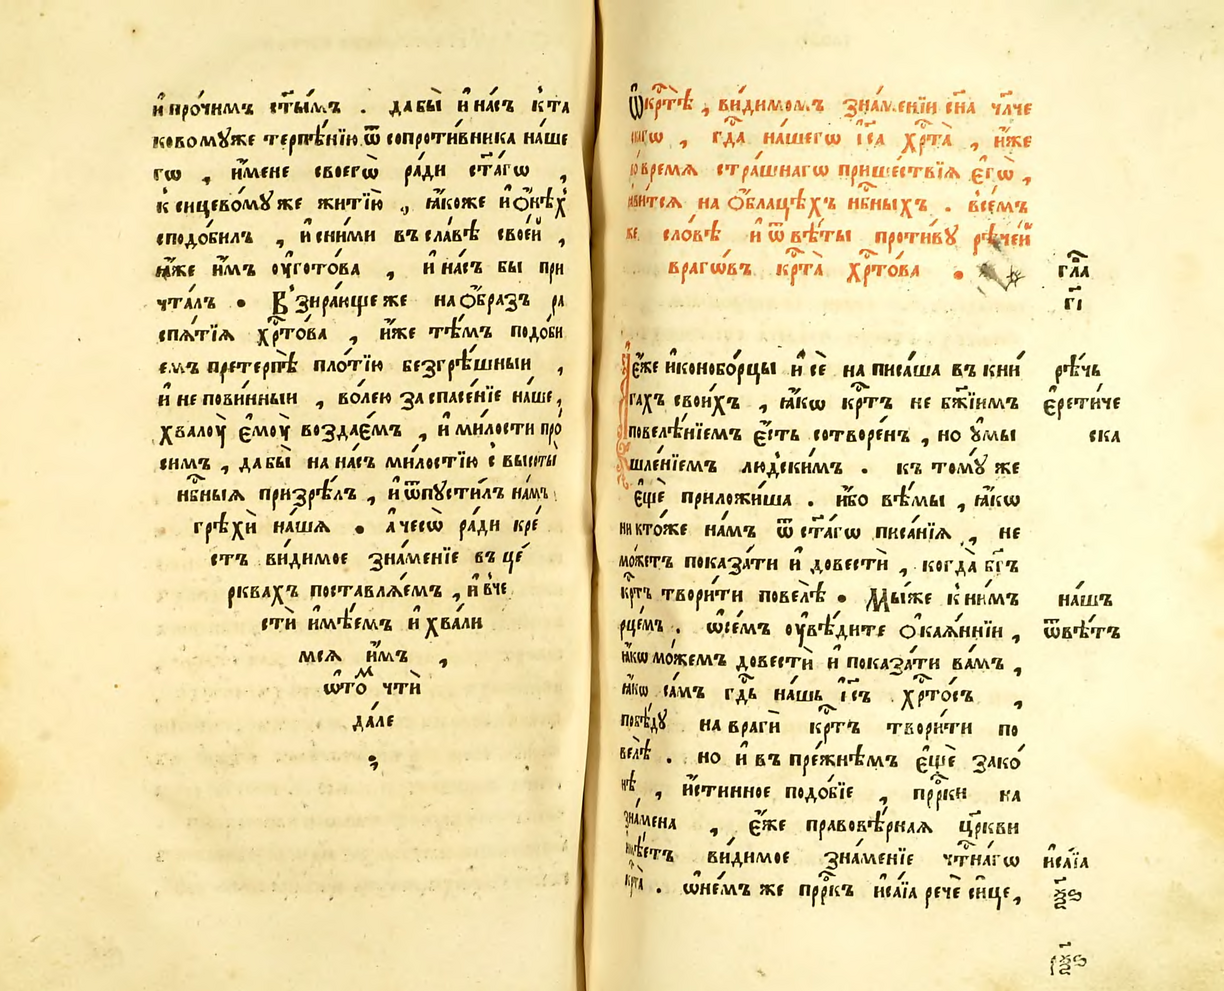 и҆ про́чимъ ст҃ы́мъ . дабы̀ и҆ на́съ к̾ та
ковомꙋже терпѣ́нїю ѿ сопроти́вника на́ше
гѡ , и҆́мене своегѡ̀ ра́ди ст҃а́гѡ ,
к̾ сицево́мꙋ же житїю̀ , ꙗ҆́коже и҆ ѻ҆́нѣхъ
сподо́билъ , и҆ сни́ми въ сла́вѣ свое́й ,
ꙗ҆́же и҆̀мъ ᲂу҆гото́ва , и҆ на́съ бы при
чта́лъ • Взира́юще же на ѻ҆́бразъ ра
спѧ́тїѧ хрⷭ҇то́ва , и҆́же тѣ́мъ подо́би
емъ претерпѣ̀ пло́тїю безгрѣ́шныи ,
и҆ непови́нныи , во́лею за спасе́нїе на́ше ,
хвалоу̀ є҆моу̀ воздае́мъ , и҆ ми́лости про́
симъ , дабы̀ на на́съ ми́лостїю с̾ высоты̀
нбⷭ҇ныѧ призрѣ́лъ , и҆ ѿпꙋсти́лъ на́мъ
грѣхѝ на́шѧ • а҆ чесѡ̀ ра́ди кре́
стъ ви́димое зна́менїе въ це́
рквахъ поставлѧ́емъ , и҆ в̾ че
сти и҆мѣ́емъ и҆ хва́ли
мсѧ и҆́мъ ,
ѡ҆ то́мъ чтѝ
да́ле
ѡ҆ крⷭ҇тѣ̀ , ви́димомъ зна́менїи сн҃а чл҃че
скагѡ , гдⷭ҇а на́шегѡ і҆с҃а хрⷭ҇та̀ , и҆́же
во вре́мѧ стра́шнагѡ прише́ствїѧ є҆гѡ̀ ,
ꙗ҆ви́тсѧ на ѻ҆́блацѣхъ нбⷭ҇ныхъ . в̾се́мъ
же сло́вѣ и҆ ѿвѣ́ты проти́вꙋ рѣче́й
врагѡ́въ крⷭ҇та̀ хрⷭ҇то́ва •
гла
г҃і
І҆ є҆́же и҆конобо́рцы и҆ сѐ написа́ша въ кни́
гахъ свои́хъ , ꙗ҆́кѡ крⷭ҇тъ не бж҃їимъ
повелѣ́нїемъ є҆́сть сотворе́нъ , но ᲂу҆мы
шле́нїемъ лю́дскимъ . къ томꙋ́ же
є҆щѐ приложи́ша . и҆́бо вѣ́мы , ꙗ҆́кѡ
никто́же на́мъ ѿ ст҃а́гѡ писа́нїѧ , не
мо́жетъ показа́ти и҆ довестѝ , когда̀ бг҃ъ
крⷭ҇тъ твори́ти повелѣ̀ • Мы́же к̾ ни́мъ
рце́мъ . ѡ҆ се́мъ ᲂу҆вѣ́дите ѻ҆кая́ннїи ,
ꙗ҆́кѡ мо́жемъ довестѝ и҆ показа́ти ва́мъ ,
ꙗ҆́кѡ са́мъ гдⷭ҇ь на́шь і҆с҃ъ хрⷭ҇то́съ ,
побѣ́дꙋ на врагѝ крⷭ҇тъ твори́ти по
велѣ̀ . но и҆ въ пре́жнѣмъ є҆щѐ зако́
нѣ , и҆́стинное подо́бїе , прⷪ҇рки на
зна́мена , є҆́же правовѣ́рнаѧ цр҃кви
и҆мѣ́етъ ви́димое зна́менїе чтⷭ҇на́гѡ
крⷭ҇та̀ . ѡ҆ не́мъ же прⷪ҇ркъ и҆са́їа речѐ си́це ,
рѣ́чь
є҆рети́че
ска
на́шъ
ѿвѣ́тъ
и҆са́їа